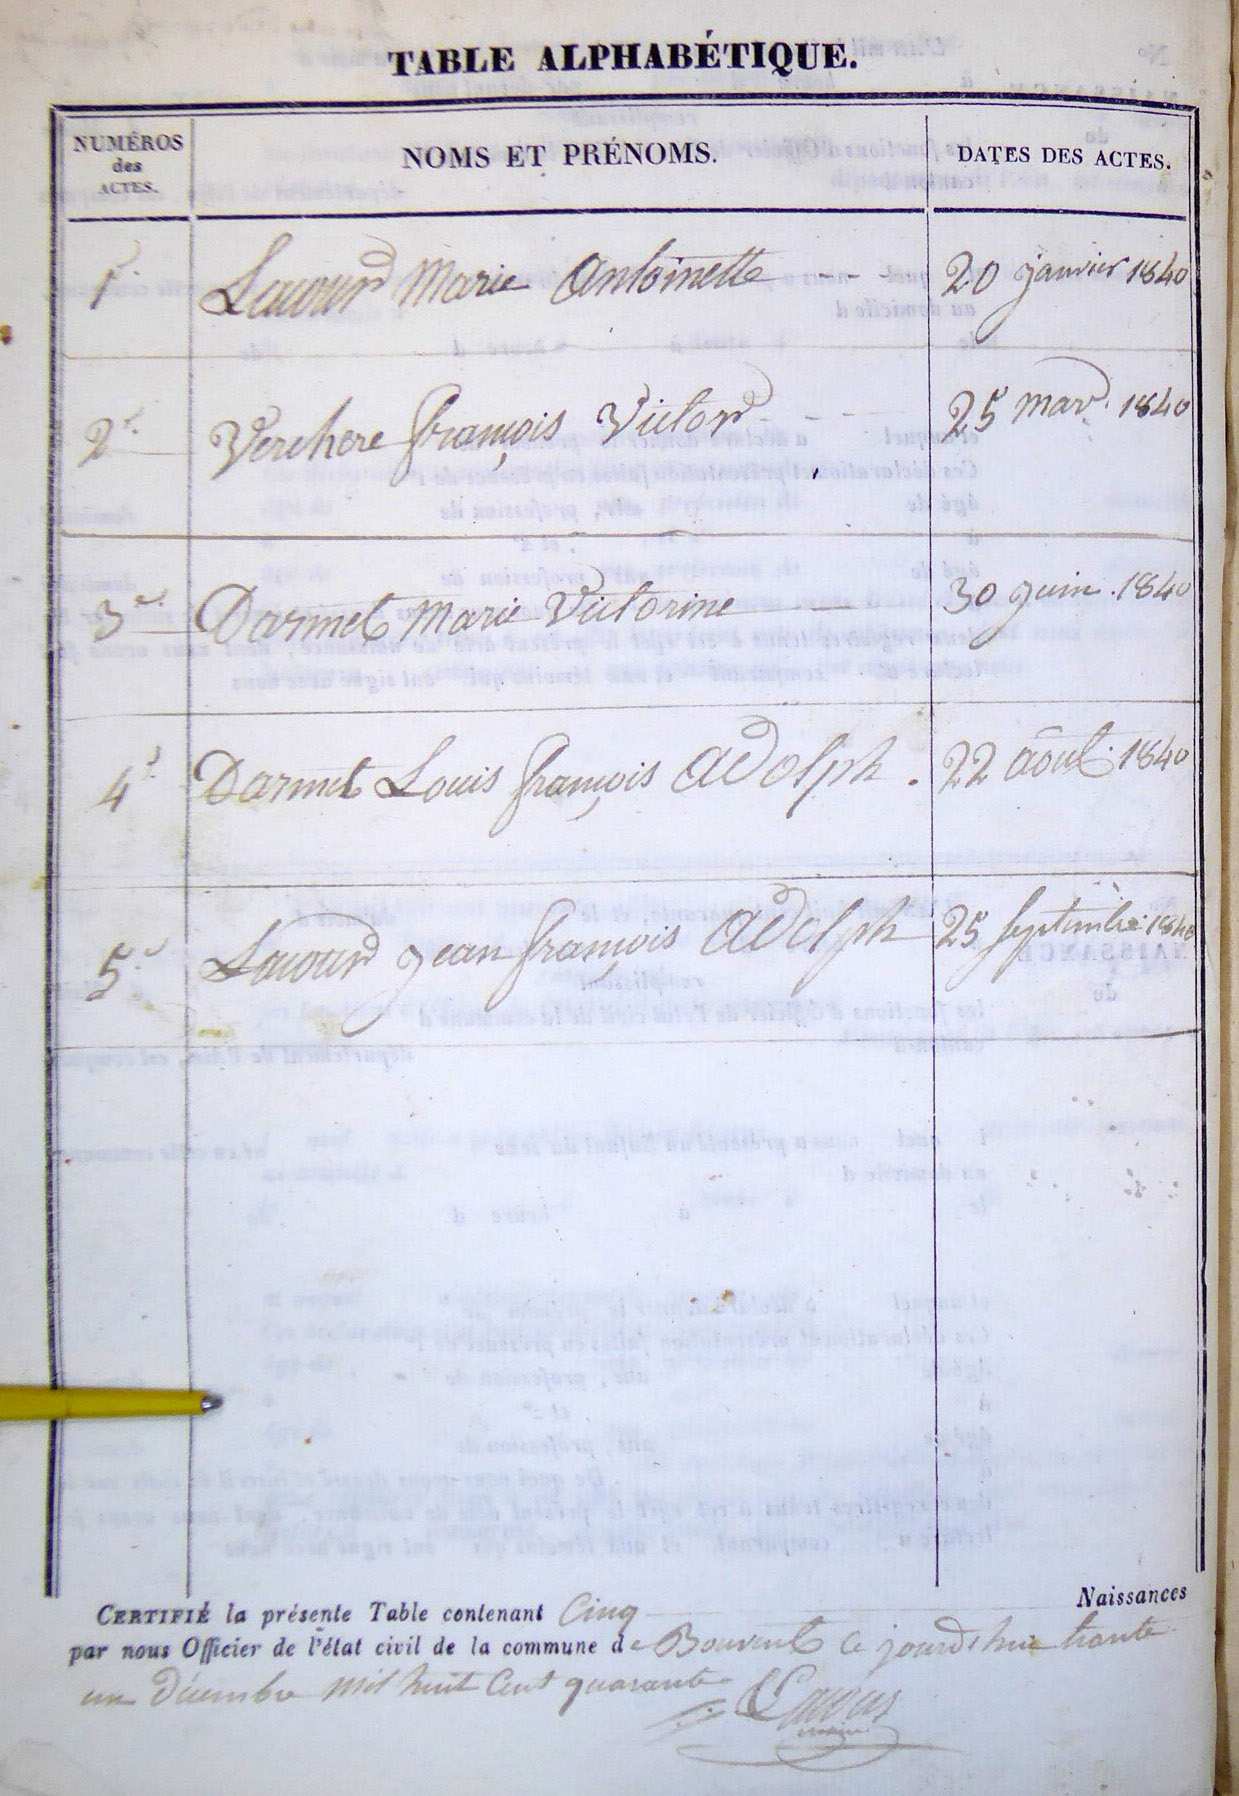 TABLE ALPHABÉTIQUE.
NUMÉROS
des
ACTES.
NOMS ET PRÉNOMS.
DATES DES ACTES.
1r. Lacour Marie Antoinette 20 janvier 1840
2e. Verchere françois Victor 25 mars. 1840
3e. Darmet Marie Victorine 30 juin. 1840
4e. Darmet Louis françois adolph. 22 août. 1840
5e. Lacour jean françois adolph 25 septembre 1840
CERTIFIÉ la présente Table contenant Cinq Naissances
par nous Officier de l'état civil de la commune de Bouvent ce jourd'hui trente
un Décembre mil huit Cent quarante
maire